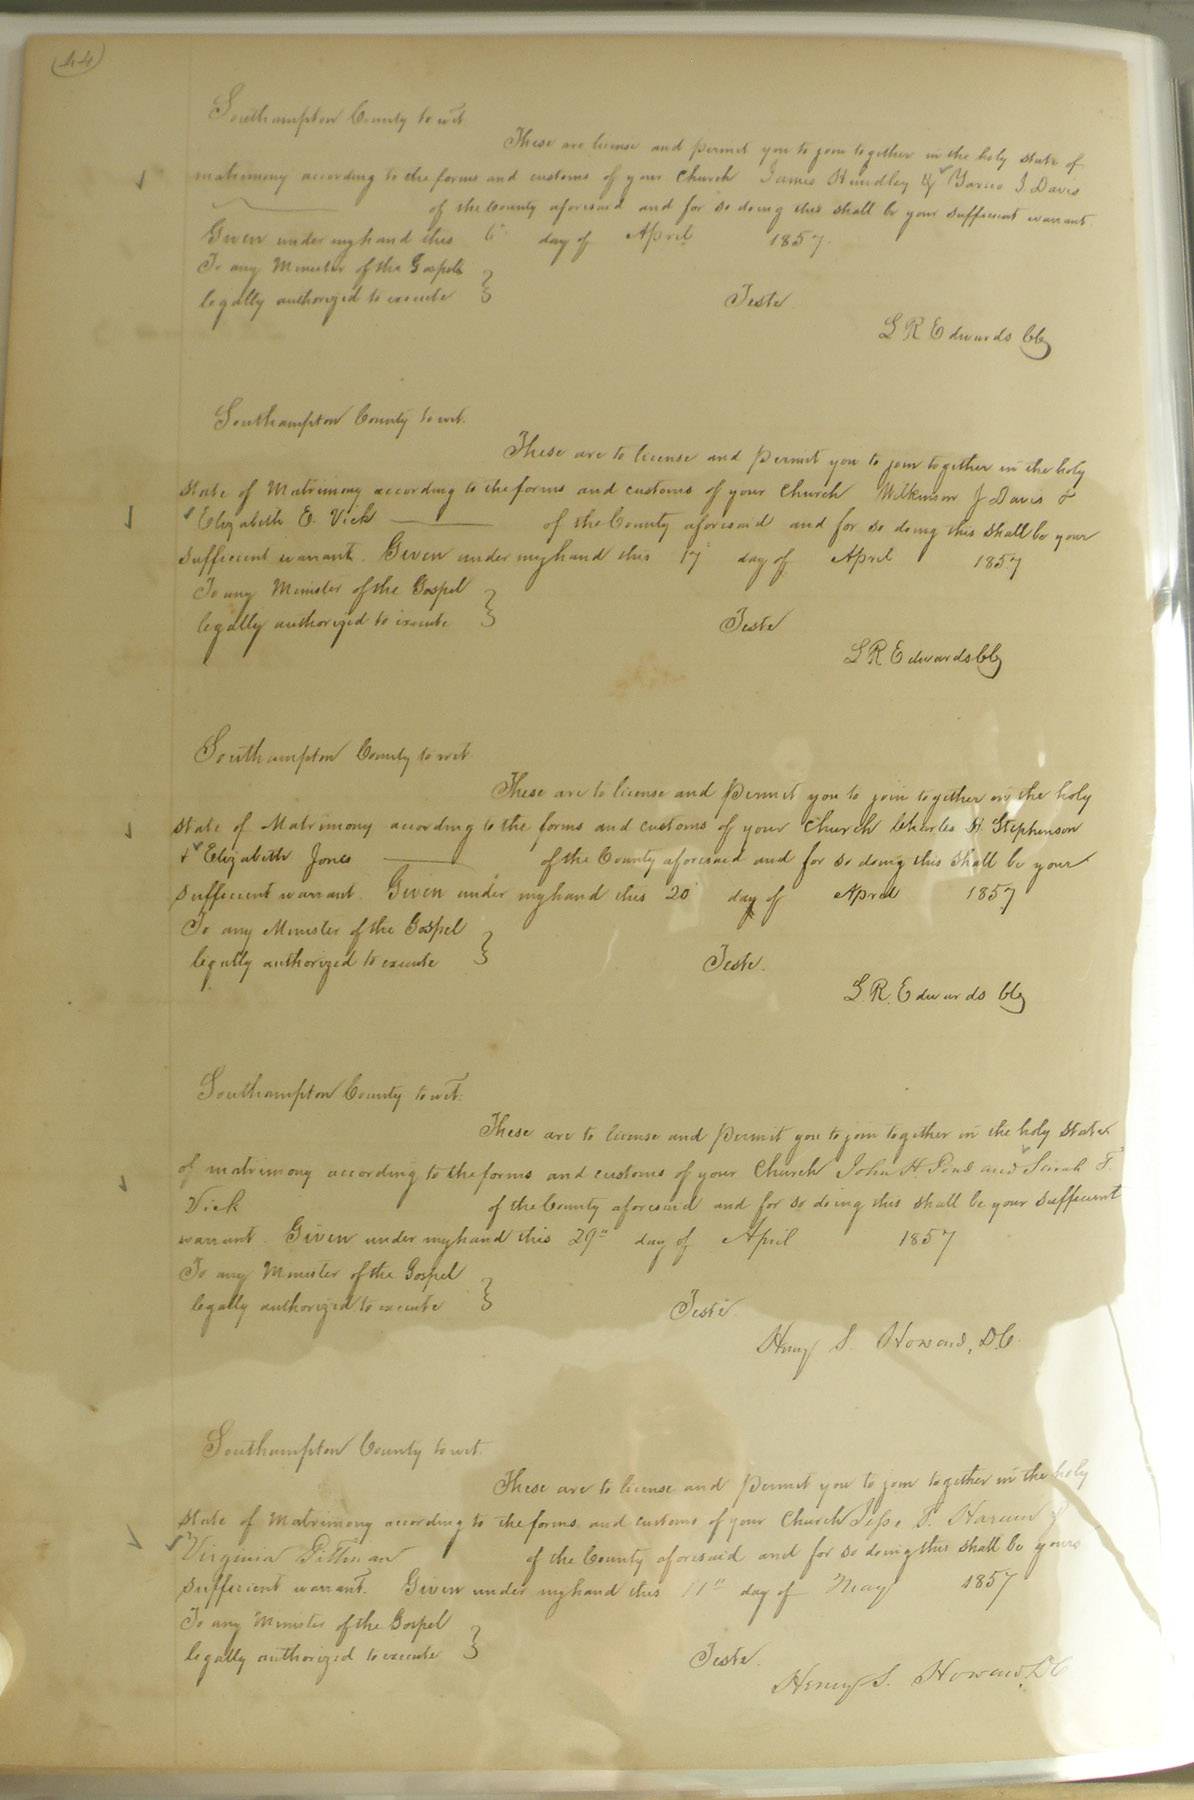 44
Southampton County to wit
These are license and permit you to join together in the holy state of
matrimony according to the forms and customs of your Church James Hundley & J Davis
of the County aforesaid and for so doing this shall be your sufficient warrant
Given under my hand this 6 day of April 1857.
To any Minister of the Gospel
legally authorized to execute } Teste
L R Edwards Clk
Southampton County to wit.
These are to license and permit you to join together in the holy
state of Matrimony according to the forms and customs of your Church Wilkinson J Davis &
Elizabeth E. Vick of the County aforesaid and for so doing this shall be your
sufficient warrant. Given under my hand this 17 day of April 1857
To any Minister of the Gospel
legally authorized to execute } Teste
L R Edwards Clk
Southampton County to wit
These are to license and permit you to join together in the holy
state of Matrimony according to the forms and customs of your Church Charles H Stephenson
& Elizabeth Jones of the County aforesaid and for so doing this shall be your
sufficient warrant. Given under my hand this 20 day of April 1857
To any Minister of the Gospel
legally authorized to execute } Teste.
L R. Edwards Clk
Southampton County to wit.
These are to license and permit you to join together in the holy state
of matrimony according to the forms and customs of your Church John H. and Sarah F.
Vick of the County aforesaid and for so doing this shall be your sufficient
warrant. Given under my hand this 29" day of April 1857
To any Minister of the Gospel
legally authorized to execute } Teste.
Henry S. Howard, D.C.
Southampton County to wit.
These are to license and permit you to join together in the holy
state of Matrimony according to the forms and customs of your Church Jesse &
Virginia Pittman of the County aforesaid and for so doing this shall be your
sufficient warrant. Given under my hand this 11" day of May 1857
To any Minister of the Gospel
legally authorized to execute } Teste.
Henry S. Howard, DC